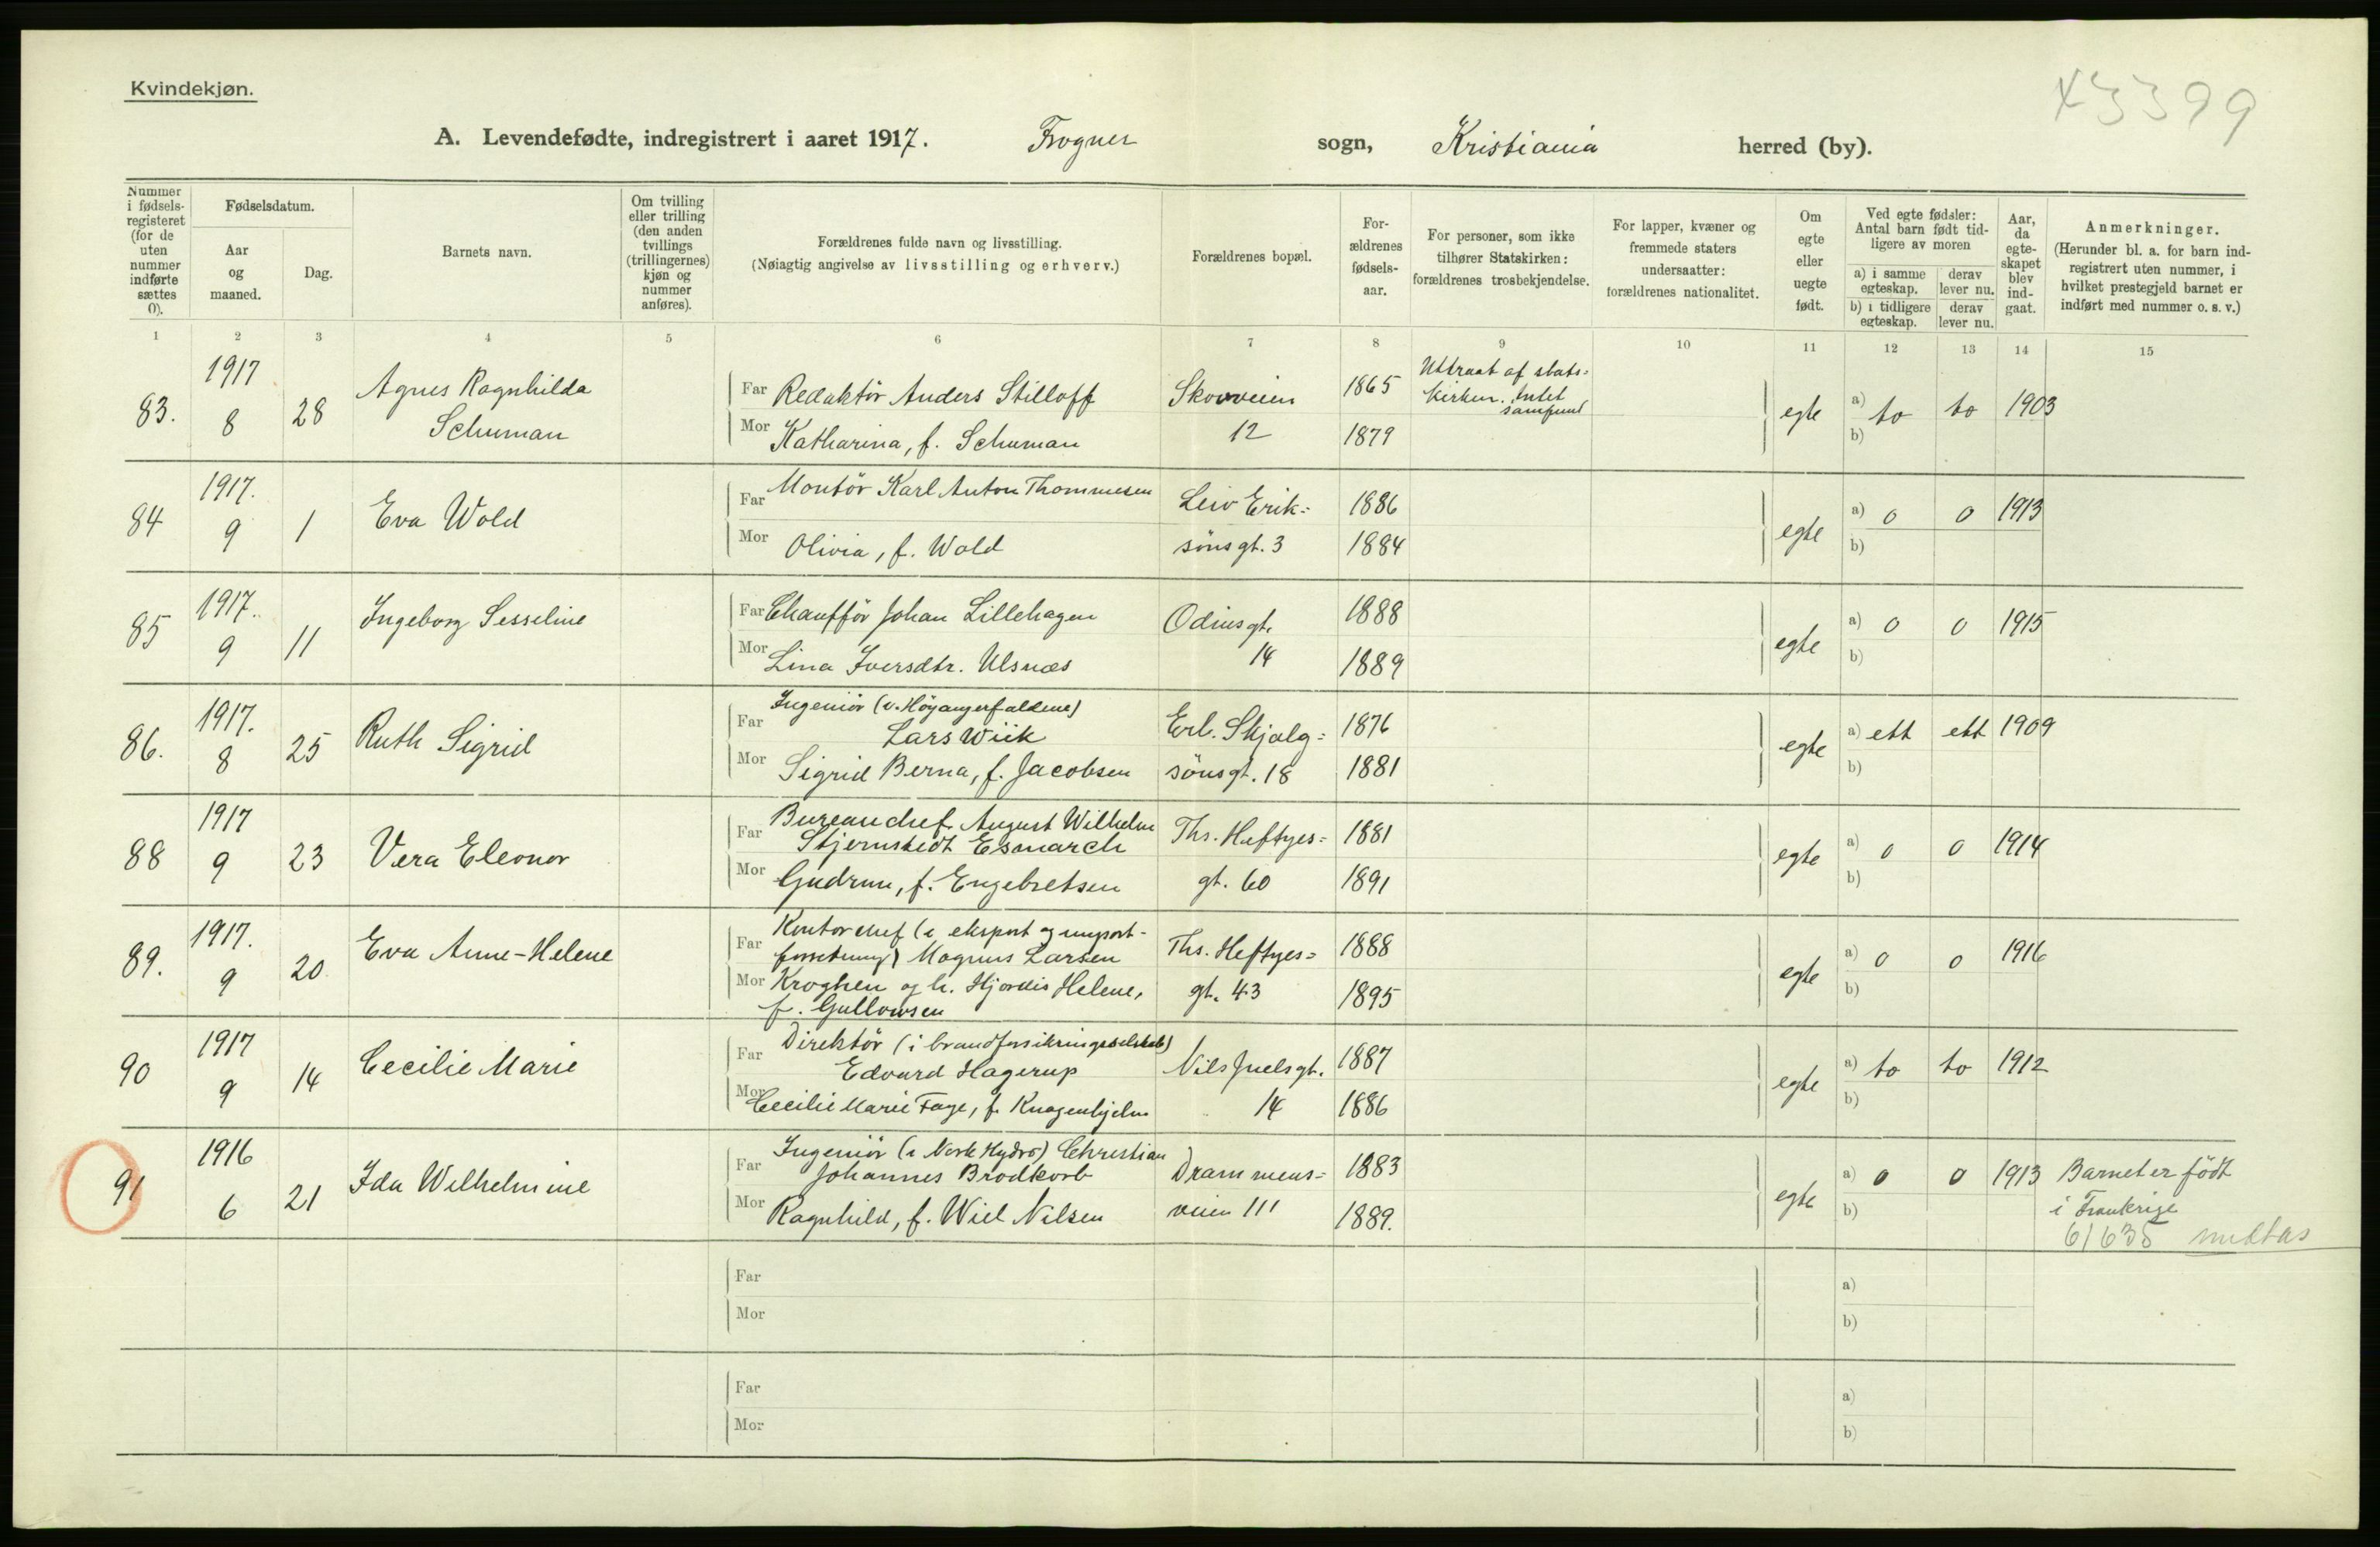 Kvindekjøn.
x3399
A. Levendefødte, indregistrert i aaret 1917. Frogner sogn, Kristiania herred (by).
Nummer i fødsels-registeret (for de uten nummer indførte sættes 0).
Fødselsdatum.
Aar og maaned.
Dag.
Barnets navn.
Om tvilling eller trilling (den anden tvillings (trillingernes) kjøn og nummer anføres).
Forældrenes fulde navn og livsstilling.
(Nøiagtig angivelse av livsstilling og erhverv.)
Forældrenes bopæl.
For-ældrenes fødsels-aar.
For personer, som ikke tilhører Statskirken: forældrenes trosbekjendelse.
For lapper, kvæner og fremmede staters undersaatter: forældrenes nationalitet.
Om egte eller uegte født.
Ved egte fødsler: Antal barn født tid-ligere av moren
a) i samme egteskap.
derav lever nu.
b) i tidligere egteskap.
derav lever nu.
Aar, da egte-skapet blev ind-gaat.
Anmerkninger.
(Herunder bl. a. for barn ind-registrert uten nummer, i hvilket prestegjeld barnet er indført med nummer o. s. v.)
1 2 3 4 5 6 7 8 9 10 11 12 13 14 15
83. 1917 8 28 Agnes Ragnhilda Schuman
Far Redaktör Anders Stilloff Skovveien 1865 Uttraat af stats-kirken. Intet samfund
Mor Katharina, f. Schuman 12 1879
egte a) to to 1903
b)
84 1917. 9 1 Eva Wold
Far Montör Karl Anton Thommesen Leiv Erik- 1886
Mor Olivia, f. Wold sönsgt. 3 1884
egte a) 0 0 1913
b)
85 1917. 9 11 Ingeborg Sesseline
Far Chaufför Johan Lillehagen Odinsgt. 1888
Mor Lina Iversdtr. Ulsnæs 14 1889
egte a) 0 0 1915
b)
86. 1917. 8 25 Ruth Sigrid
Far Ingeniör (v. Höyangerfaldene) Lars Wiik Erl. Skjalg- 1876
Mor Sigrid Berna, f. Jacobsen sönsgt. 18 1881
egte a) ett ett 1909
b)
88 1917 9 23 Vera Eleonor
Far Bureauchef August Wilhelm Stjernstedt Esmarch Ths. Heftyes- 1881
Mor Gudrun, f. Engebretsen gt. 60 1891
egte a) 0 0 1914
b)
89. 1917. 9 20 Eva Anne-Helene
Far Kontorchef (i eksport og import-forretning) Magnus Larsen Ths. Heftyes- 1888
Mor Kroghen og h. Hjördis Helene, f. Gullowsen gt. 43 1895
egte a) 0 0 1916
b)
90 1917 9 14 Cecilie Marie
Far Direktör (i brandforsikringsselskab) Edvard Hagerup Nils Juelsgt. 1887
Mor Cecilie Marie Faye, f. Knagenhjelm 14 1886
egte a) to to 1912
b)
91 1916 6 21 Ida Wilhelmine
Far Ingeniör (i Norsk Hydro) Christian Johannes Brodkorb Drammens- 1883
Mor Ragnhild, f. Wiel Nilsen veien 111 1889.
egte a) 0 0 1913 Barnet er född
b) i Frankrige
61635
Far a)
Mor b)
Far a)
Mor b)